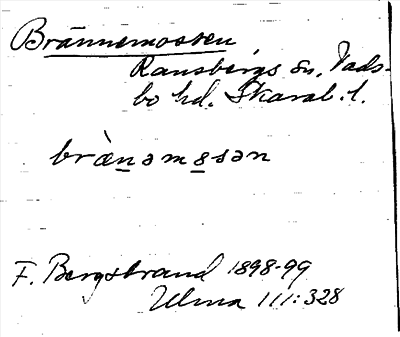 Brännemossen
Ransbergs sn, Vads-
bo hd. Skarab. l.
brànəmosən
F. Bergstrand 1898-99
Ulma 111:328